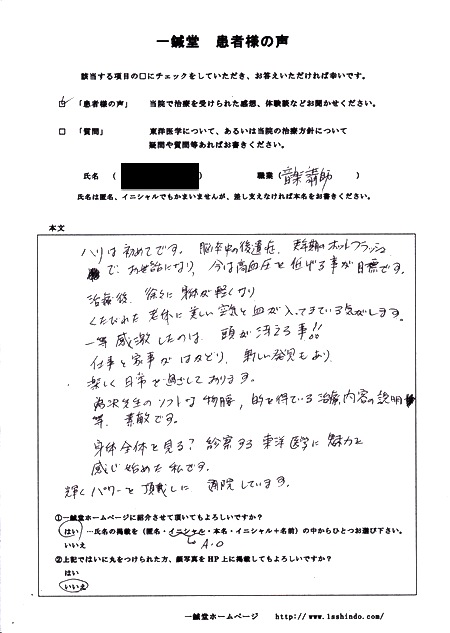 一鍼堂 患者様の声
該当する項目の□にチェックをしていただき、お答えいただければ幸いです。
☑ 「患者様の声」 当院で治療を受けられた感想、体験談などお聞かせください。
□ 「質問」 東洋医学について、あるいは当院の治療方針について
疑問や質問等あればお書きください。
氏名 ( ) 職業 (音楽講師 )
氏名は匿名、イニシャルでもかまいませんが、差し支えなければ本名をお書きください。
本文
ハリは初めてです。脳卒中の後遺症、更年期のホットフラッシュ
で、お世話になり、今は高血圧を低げる事が目標です。
治療後、徐々に身体が軽くなり
くたびれた老体に美しい空気と血が入ってきている気がします。
一等感激したのは、頭が冴える事!!
仕事と家事がはかどり、新しい発見もあり、
楽しく日常を過ごしております。
先生のソフトな物腰、的を得ている治療内容の説明
等、素敵です。
身体全体を見る?診察する東洋医学に魅力を
感じ始めた私です。
輝くパワーを頂戴しに通院しています。
①一鍼堂ホームページに紹介させて頂いてもよろしいですか?
はい …氏名の掲載を(匿名・イニシャル・本名・イニシャル+名前)の中からひとつお選び下さい。
いいえ A.O
②上記ではいに丸をつけられた方、顔写真をHP上に掲載してもよろしいですか?
はい
いいえ
一鍼堂ホームページ http://www.1sshindo.com/